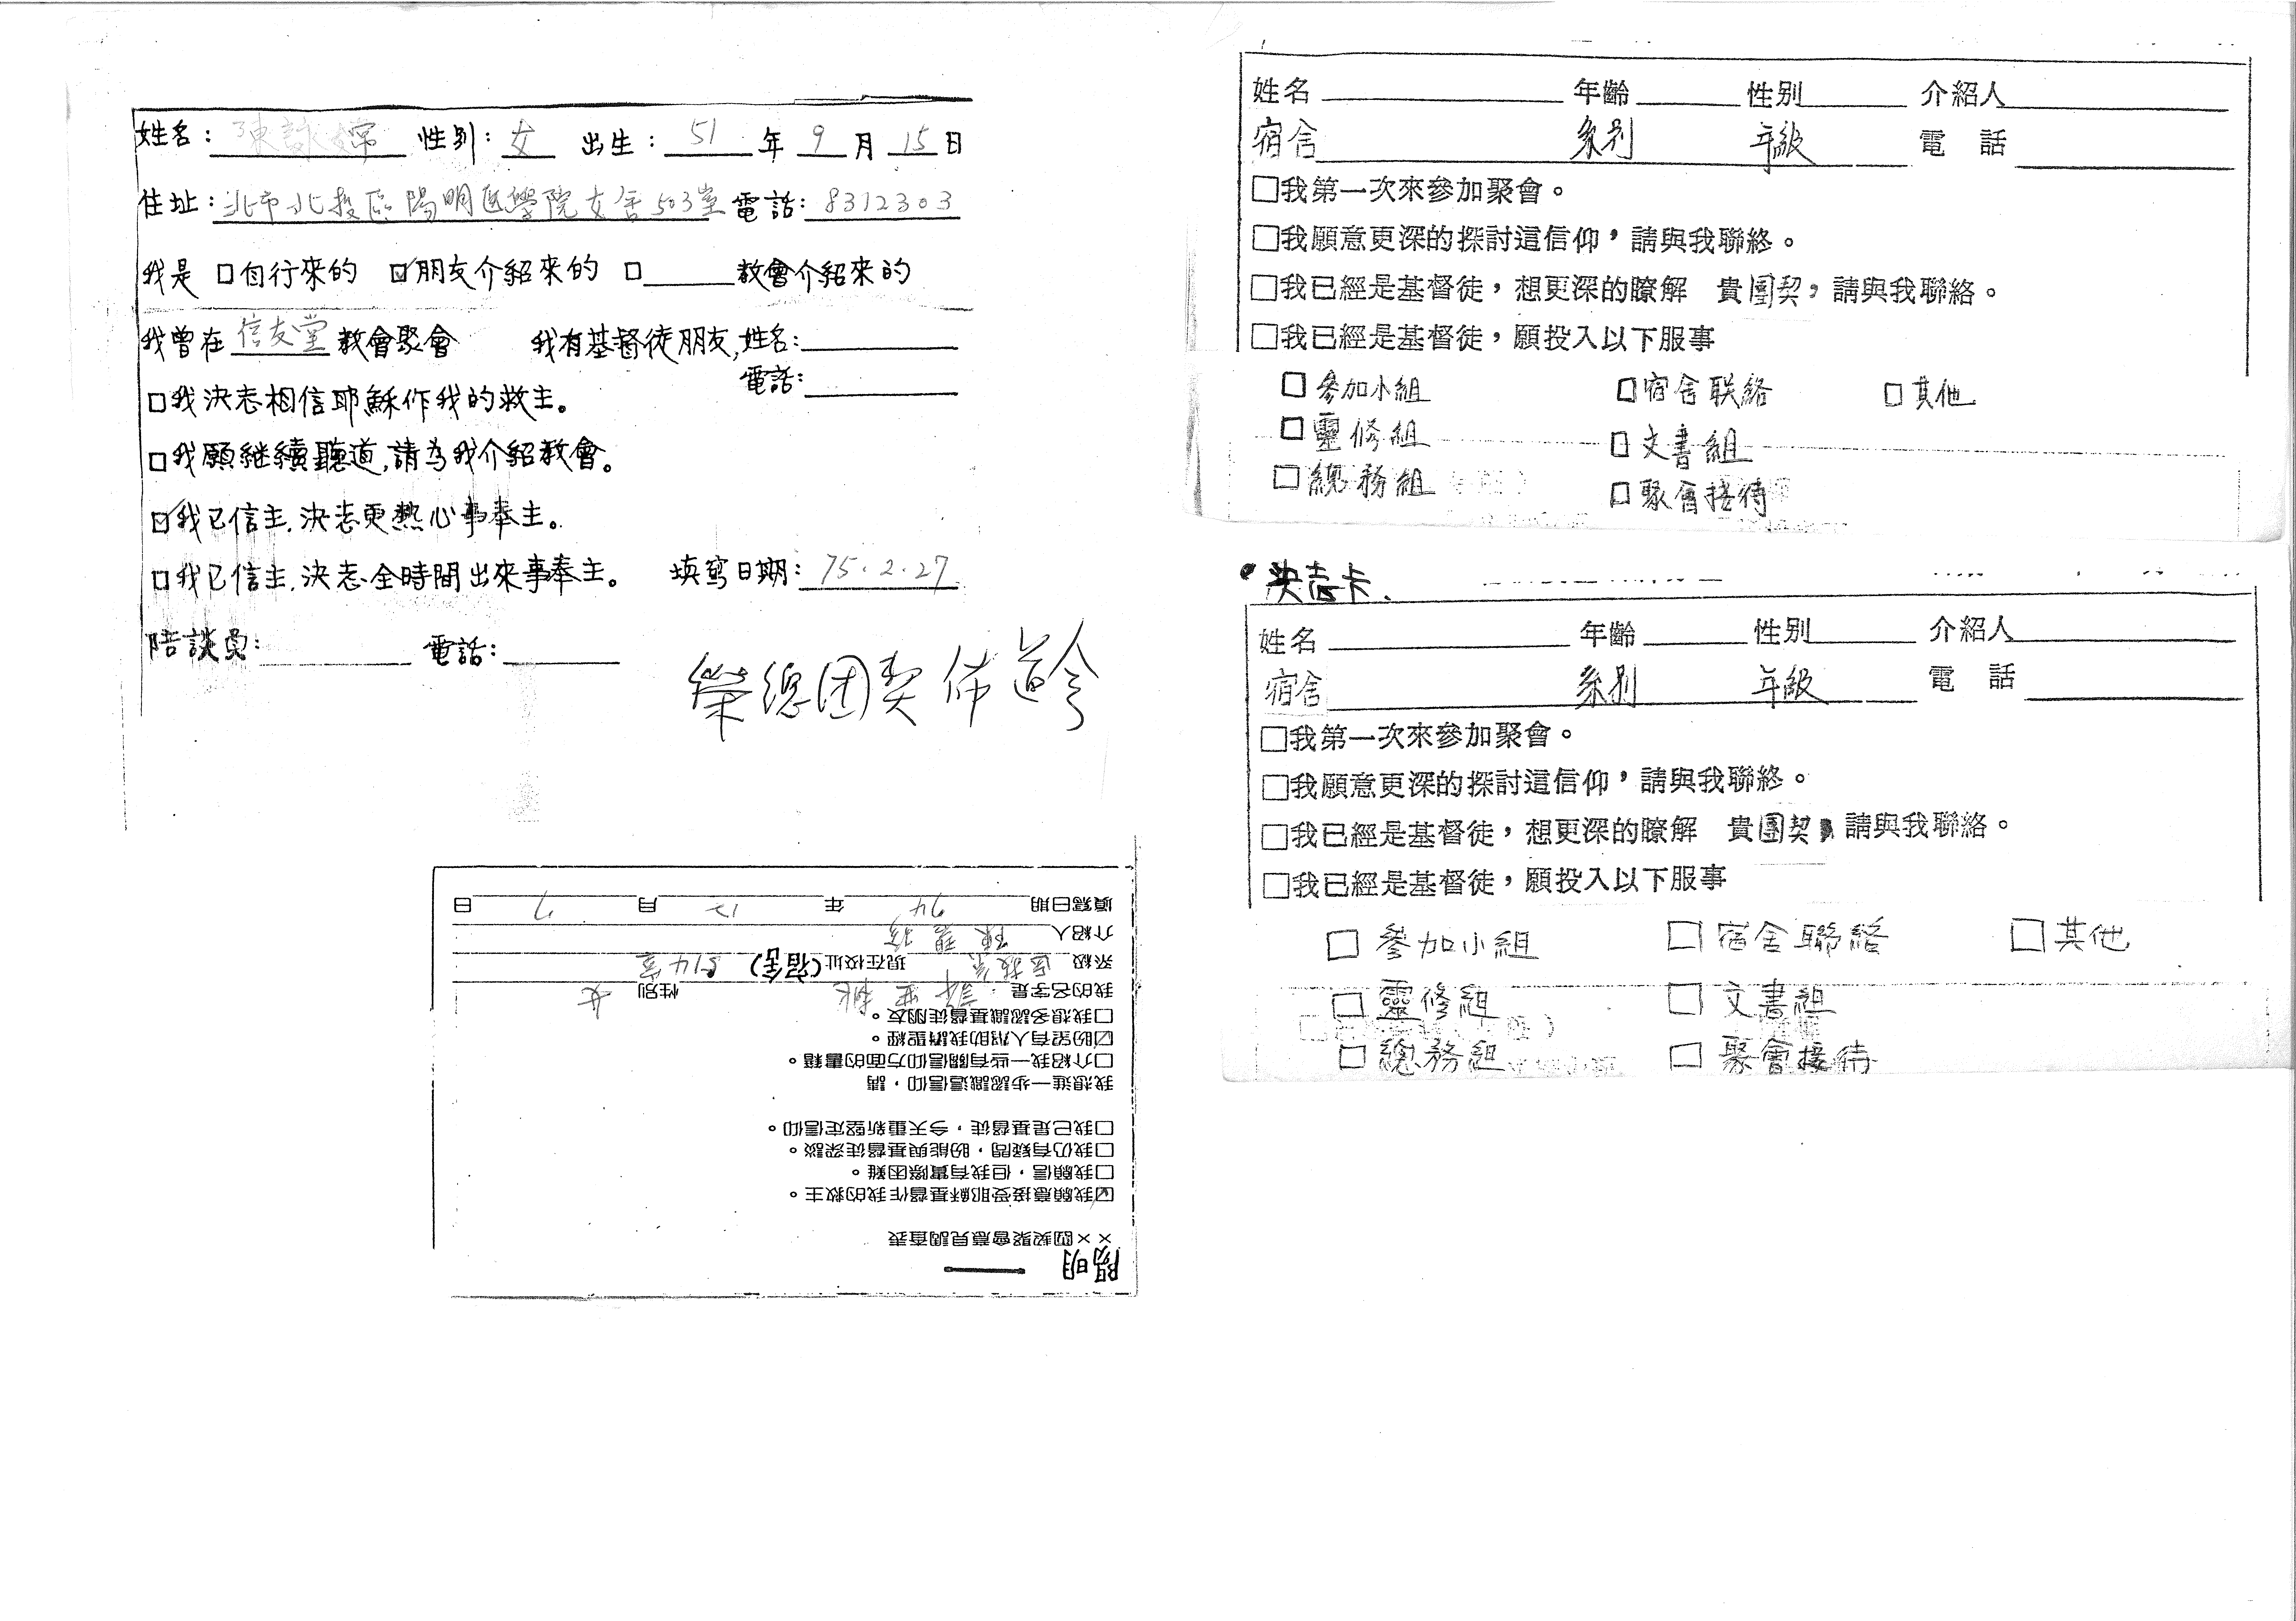 姓名： 陳詠 性別：女 出生：51年9月15日
住址：北市北投區陽明医學院女舍503室 電話：8312303
我是 □自行來的 ☑朋友介紹來的 □____教會介紹來的
我曾在信友堂教會聚會 我有基督徒朋友,姓名：
電話：
□我決志相信耶穌作我的救主。
□我願継續聽道,請為我介紹教會。
☑我已信主.決志更熱心事奉主。
□我已信主.決志全時間出來事奉主。 填寫日期：75.2.27
陪談員： 電話：
榮總团契佈道令
陽明
××團契聚會意見調查表
☑我願意接受耶穌基督作我的救主。
□我願信，但我有實際困難。
□我仍有疑問，盼能與基督徒深談。
□我已是基督徒，今天重新堅定信仰。
我想進一步認識這信仰，請
□介紹我一些有關信仰方面的書籍。
☑盼望有人幫助我讀聖經。
□我想多認識基督徒朋友。
我的名字是：許 桃 性別 女
系級 医技系 現在校址(宿舍) 514室
介紹人 陳碧
填寫日期 74 年 12 月 7 日
姓名 年齡 性別 介紹人
宿舍 系別 年級 電話
□我第一次來參加聚會。
□我願意更深的探討這信仰，請與我聯絡。
□我已經是基督徒，想更深的瞭解 貴團契，請與我聯絡。
□我已經是基督徒，願投入以下服事
□參加小組 □宿舍联絡 □其他
□靈修組 □文書組
□總務組 □聚會接待
•決志卡.
姓名 年齡 性別 介紹人
宿舍 系別 年級 電話
□我第一次來參加聚會。
□我願意更深的探討這信仰，請與我聯終。
□我已經是基督徒，想更深的瞭解 貴團契，請與我聯絡。
□我已經是基督徒，願投入以下服事
□參加小組 □宿舍聯絡 □其他
□靈修組 □文書組
□總務組 □聚會接待